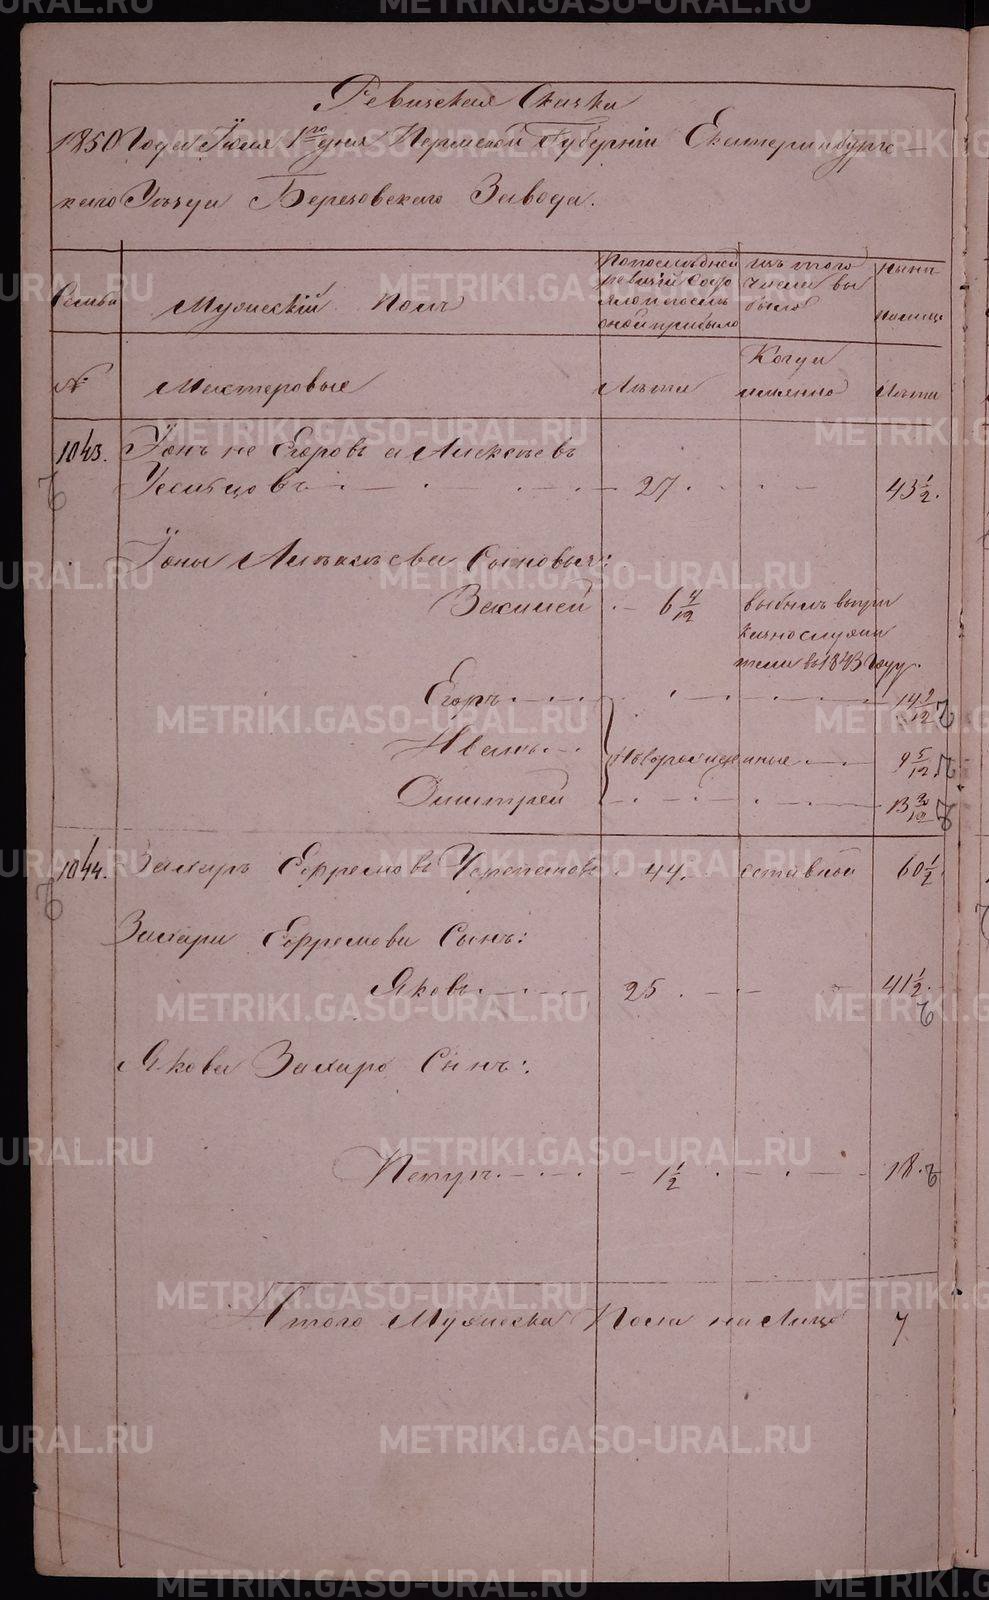 Ревизская Сказка
1850 Года Іюля 1го дня Пермской Губерніи Екатеринбургс-
каго Уезда Березовскаго Завода.
Семьи
Мужескій Полъ
По последней ревизіи состояло и после оной прибыло
изъ того числа выбыло
ныне налице
№
Мастеровые
Лета
Когда именно
Лета
1043. Іонъ не Егоровъ а Алексеевъ
27 43 1/2.
Іоны Алексеева Сыновья:
6 4/12 выбылъ въ
1843 году.
Егоръ 14 2/12
Иванъ новорожденные 9 5/12
Дмитрей 13
1044. Захаръ Ефремовъ Черепановъ 44. отставной 60 1/2
Захара Ефремова Сынъ:
Яковъ 25 41 1/2.
Якова Захаро Сынъ:
Петръ 1 1/2 18.
Итого Мужеска Пола на Лицо 7
METRIKI.GASO-URAL.RU